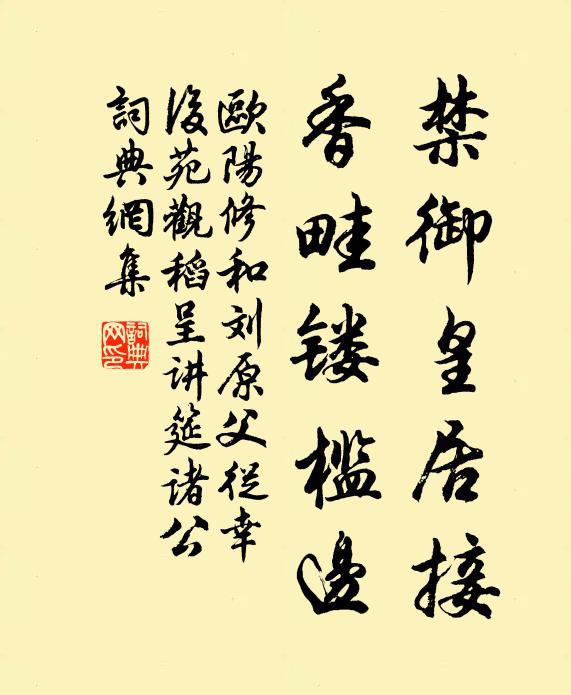 禁御皇居接
香畦镂槛邊
歐陽修和刘原父從幸
後苑觀稻呈讲筵諸公
詞典網集
詞典网印